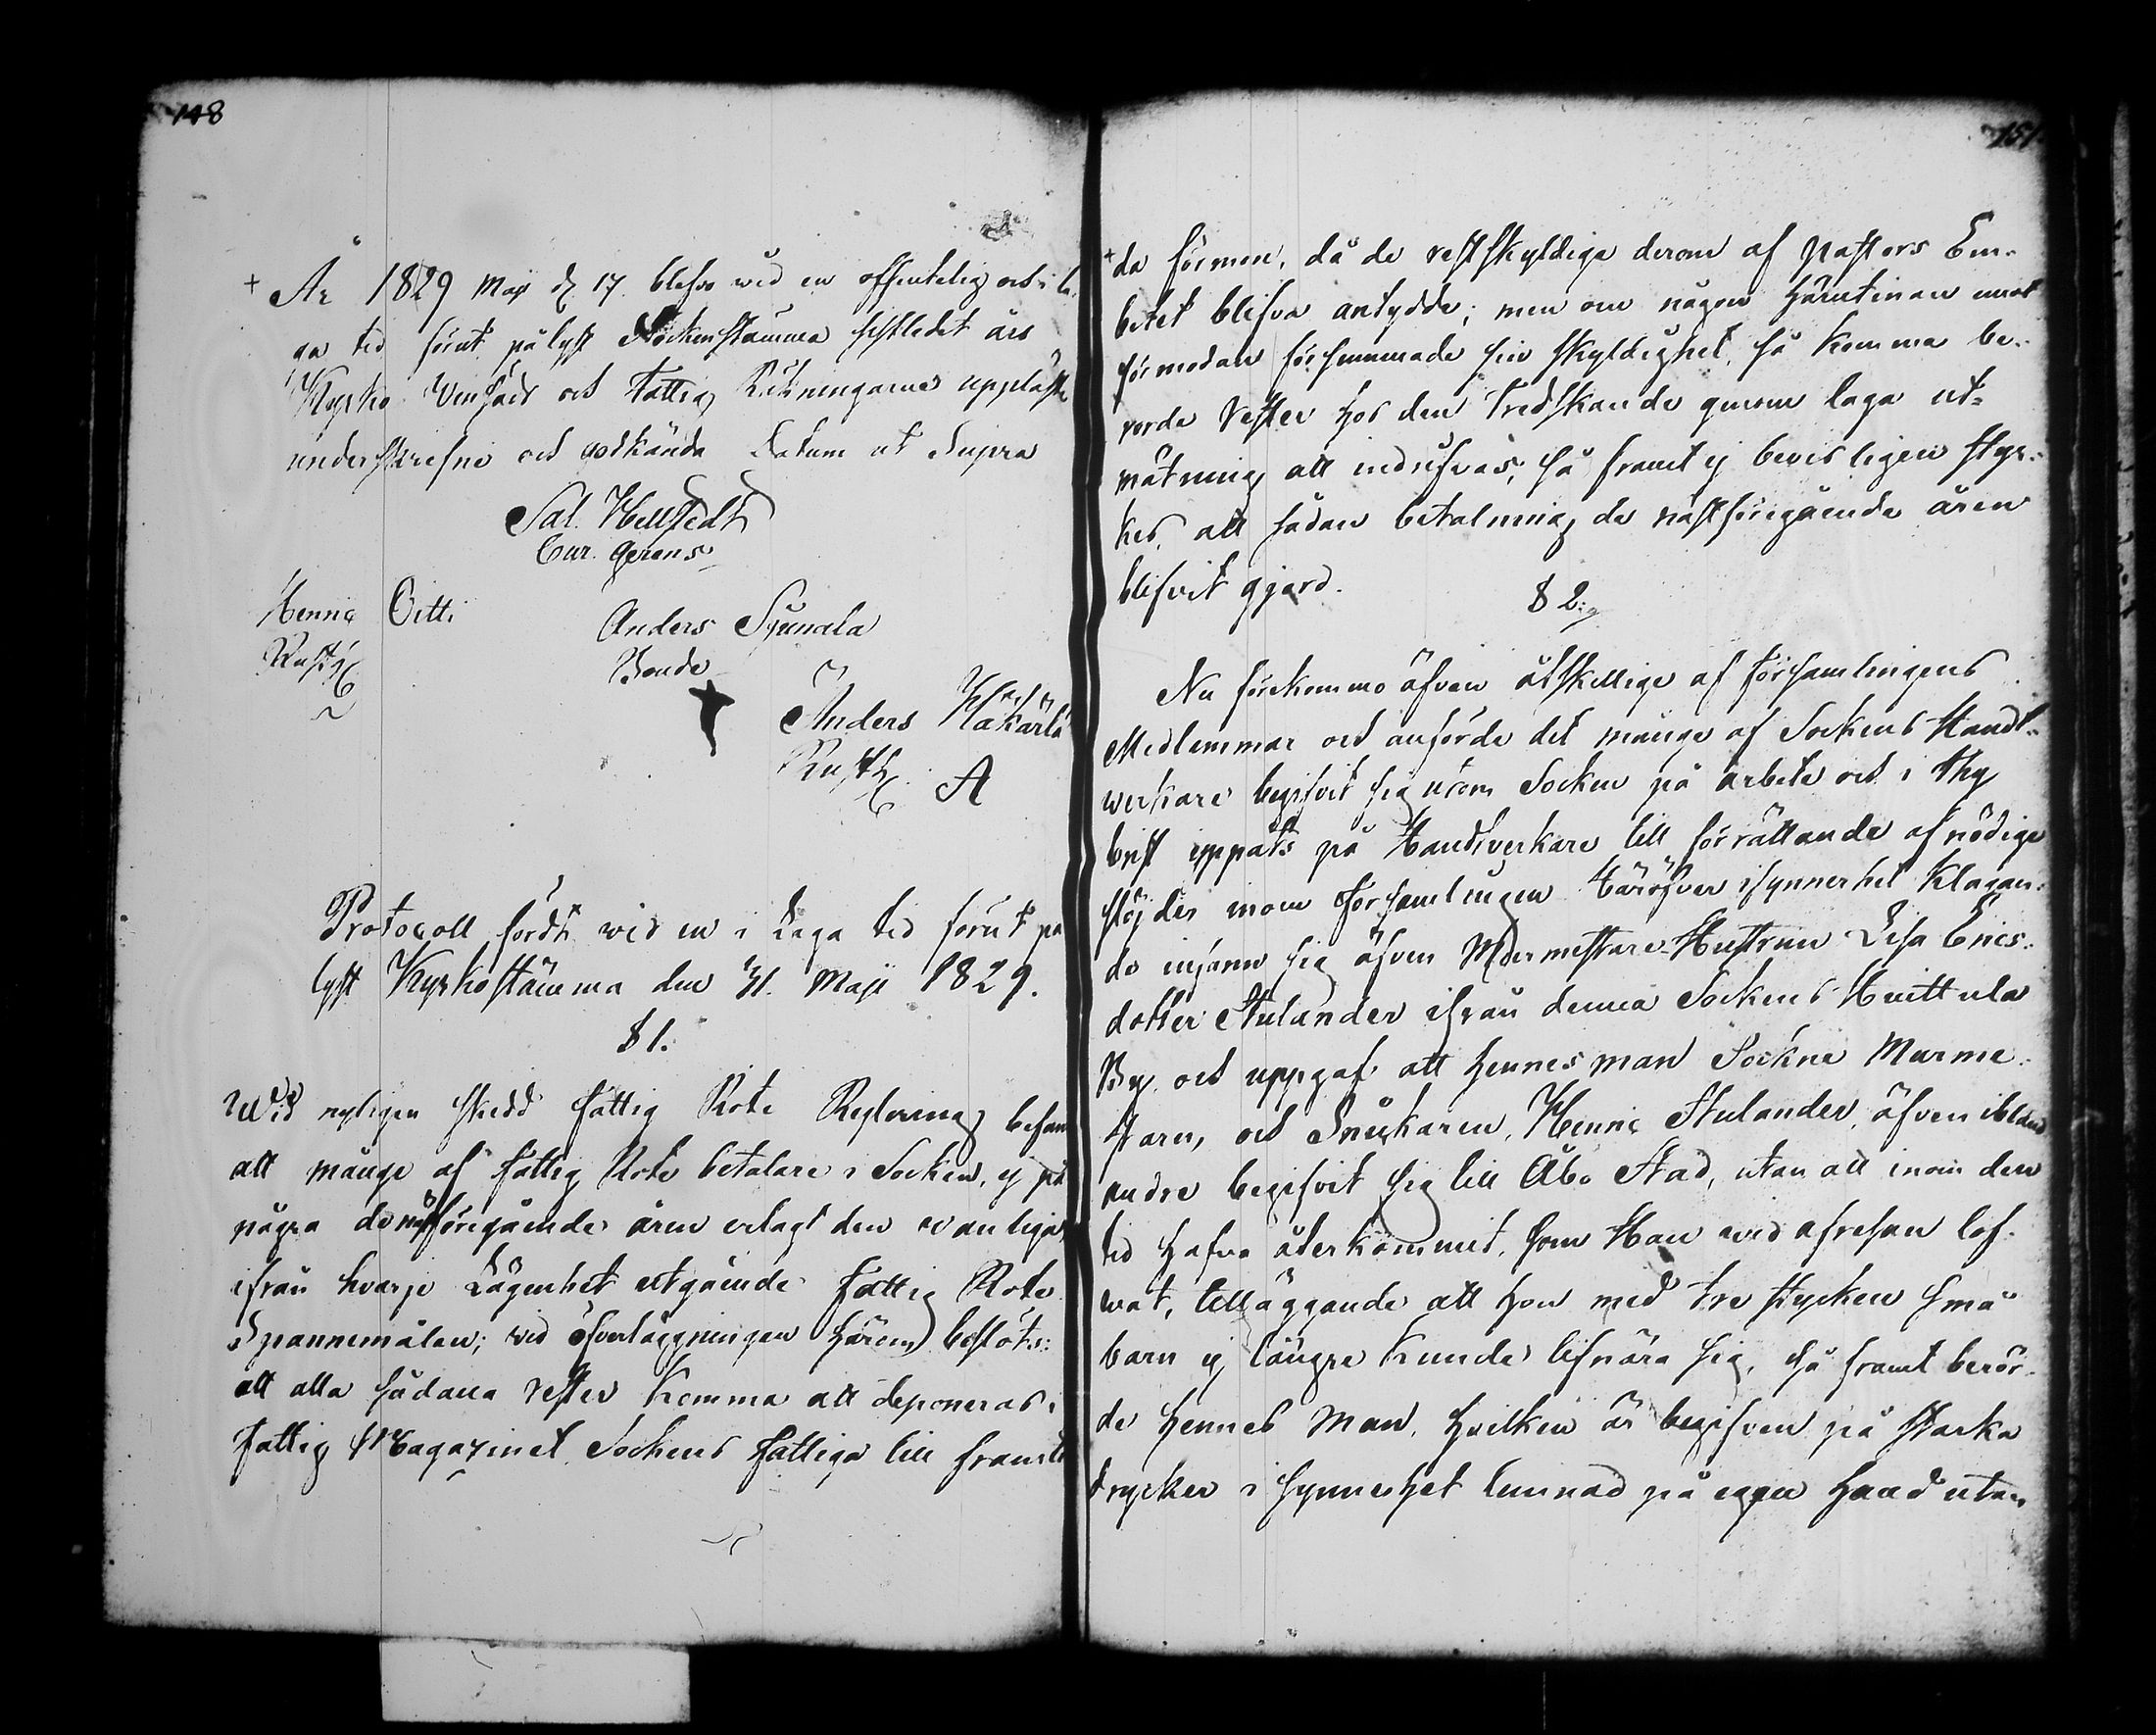 148
+ År 1829 Maji d. 17. blefvo wid en offentelig och i la-
ga tid förut pålyst Sockenstämma sistledit års
Kyrko Vinsäds och Fattig Räkningarne uppläste
underskrefne och godkände Datum ut Supra
Sal. Hellstedt
Cur. gerens
Henric Oitti
Rusth.
Anders Sjunala
Bonde
Anders Hakarla
Rusth. A
Protocoll fördt wid en i Laga tid förut på
lyst Kyrkostämma den 31. Maji 1829.
§ 1.
Wid nyligen skedd Fattig Rote Reglering befans
att månge af Fattig Rote betalare i Socken, ej på
några de nästföregående åren erlagt den wanliga,
ifrån hvarje Lägenhet utgående Fattig Rote
Spannemålen; wid öfverläggningen härom beslöts:
att alla sådana rester komma att deponeras i
Fattig Magazinet Sockens Fattiga till framti-
151.
+ da förmon, då de restskyldige derom af Pastors Em-
betet blifva antydde; men om någon härutinnan mot
förmodan försummade sin skyldighet, så komma be-
rörde Rester hos den Tredskande genom laga ut-
mätning att indrifvas; så framt ej bevisligen styr-
kes, att sådan betalning de nästföregående åren
blifvit gjord.
§ 2.
Nu förekommo äfven åtskillige af Församlingens
Medlemmar och anförde det månge af Sockens Handt-
werkare begifvit sig utom Socken på arbete och i thy
brist uppåts på Handtverkare till förrättande af nödige
slöjder inom Församlingen Häröfver isynnerhet klagan-
de infann sig äfven Murmestare-Hustrun Lisa Erics-
dotter Stulander ifrån denna Sockens Huittula
By och uppgaf att hennes man Sockne Murme-
staren, och Snickaren, Henric Stulander, äfven ibland
andre begifvit sig till Åbo Stad, utan att inom den
tid hafva återkommit, som Han wid afresan lof-
wat, tilläggande att hon med tre stycken små
barn ej längre kunde lifnära sig, så framt berör-
de hennes man, hvilken är begifven på starka
drycker i synnerhet lemnad på egen hand utan